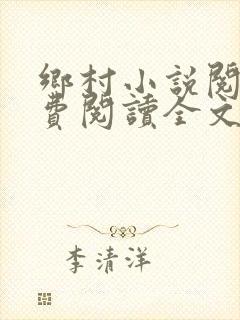 鄉村小說閱
費閱讀全文
李清洋